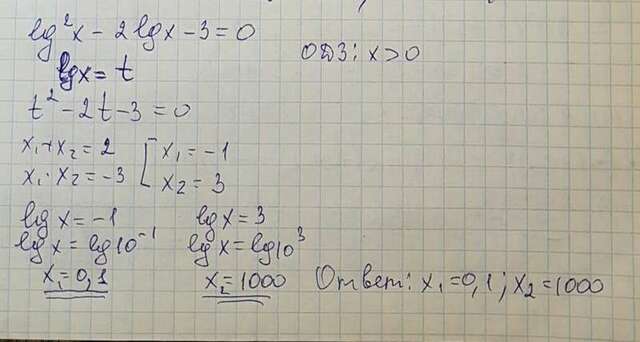 lg²x - 2lgx - 3 = 0
ОДЗ: x > 0
lgx = t
t² - 2t - 3 = 0
x₁ + x₂ = 2 [ x₁ = -1
x₁ · x₂ = -3 x₂ = 3
lg x = -1 lg x = 3
lg x = lg10⁻¹ lg x = lg10³
x₁ = 0,1 x₂ = 1000 Ответ: x₁ = 0,1 ; x₂ = 1000